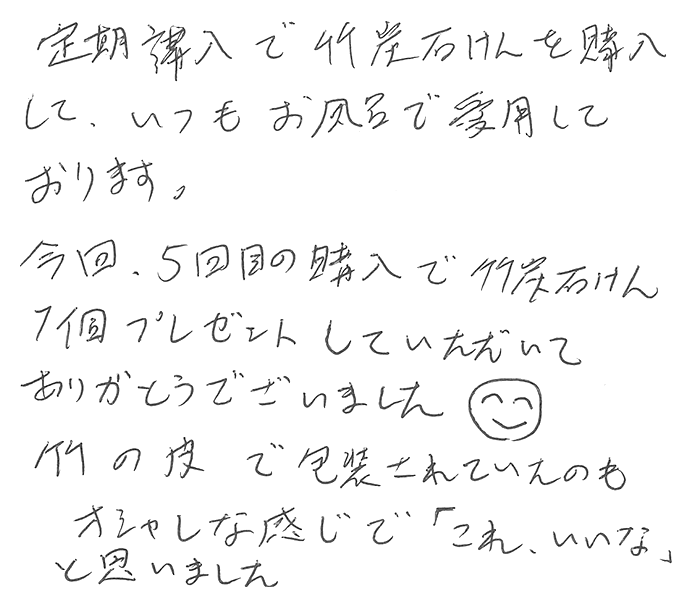 定期購入で竹炭石けんを購入
して、いつもお風呂で愛用して
おります。
今回、5回目の購入で竹炭石けん
1個プレゼントしていただいて
ありがとうございました
竹の皮で包装されていたのも
オシャレな感じで「これ、いいな」
と思いました